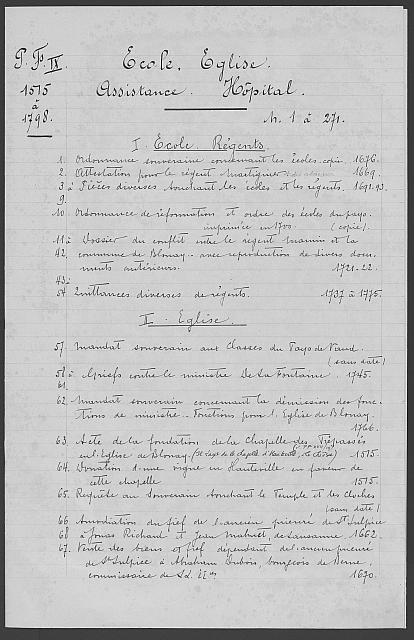 P. Fs IX.
1515
à
1798.
Ecole. Eglise.
Assistance. Hôpital.
N. 1 à 271.
I. Ecole. Régents.
1. Ordonnance souveraine concernant les écoles. copie. 1676.
2. Attestation pour le régent Martignier 1669.
3 à Pièces diverses touchant les écoles et les régents. 1691-93.
9.
10. Ordonnance de réformation et ordre des écoles du pays.
imprimée en 1700 (copie).
11 à Dossier du conflit entre le régent Mamin et la
42. commune de Blonay. avec reproduction de divers docu-
ments antérieurs. 1721-22.
43 à
54 Quittances diverses de régents. 1737 à 1775.
II. Eglise.
57. Mandat souverain aux Classes du Pays de Vaud.
(sans date)
58 à Griefs contre le ministre De La Fontaine. 1745.
61.
62. Mandat souverain concernant la démission des fonc-
tions de ministre. Fonctions pour l'Eglise de Blonay.
1766.
63. Acte de la fondation de la Chapelle des Trépassés
en l'Eglise de Blonay. 1515.
64. Donation d'une vigne en Hauteville en faveur de
cette chapelle 1515.
65. Requête au Souverain touchant le Temple et les cloches
(sans date)
66 Amodiation du fief de l'ancien prieuré de St Sulpice
68 à Jonas Richard et Jean Mathiet, de Lausanne. 1662.
67. Vente des biens et fief dépendant de l'ancien prieuré
de St Sulpice à Abraham Dubois, bourgeois de Berne,
commissaire de L.L. EE. 1670.